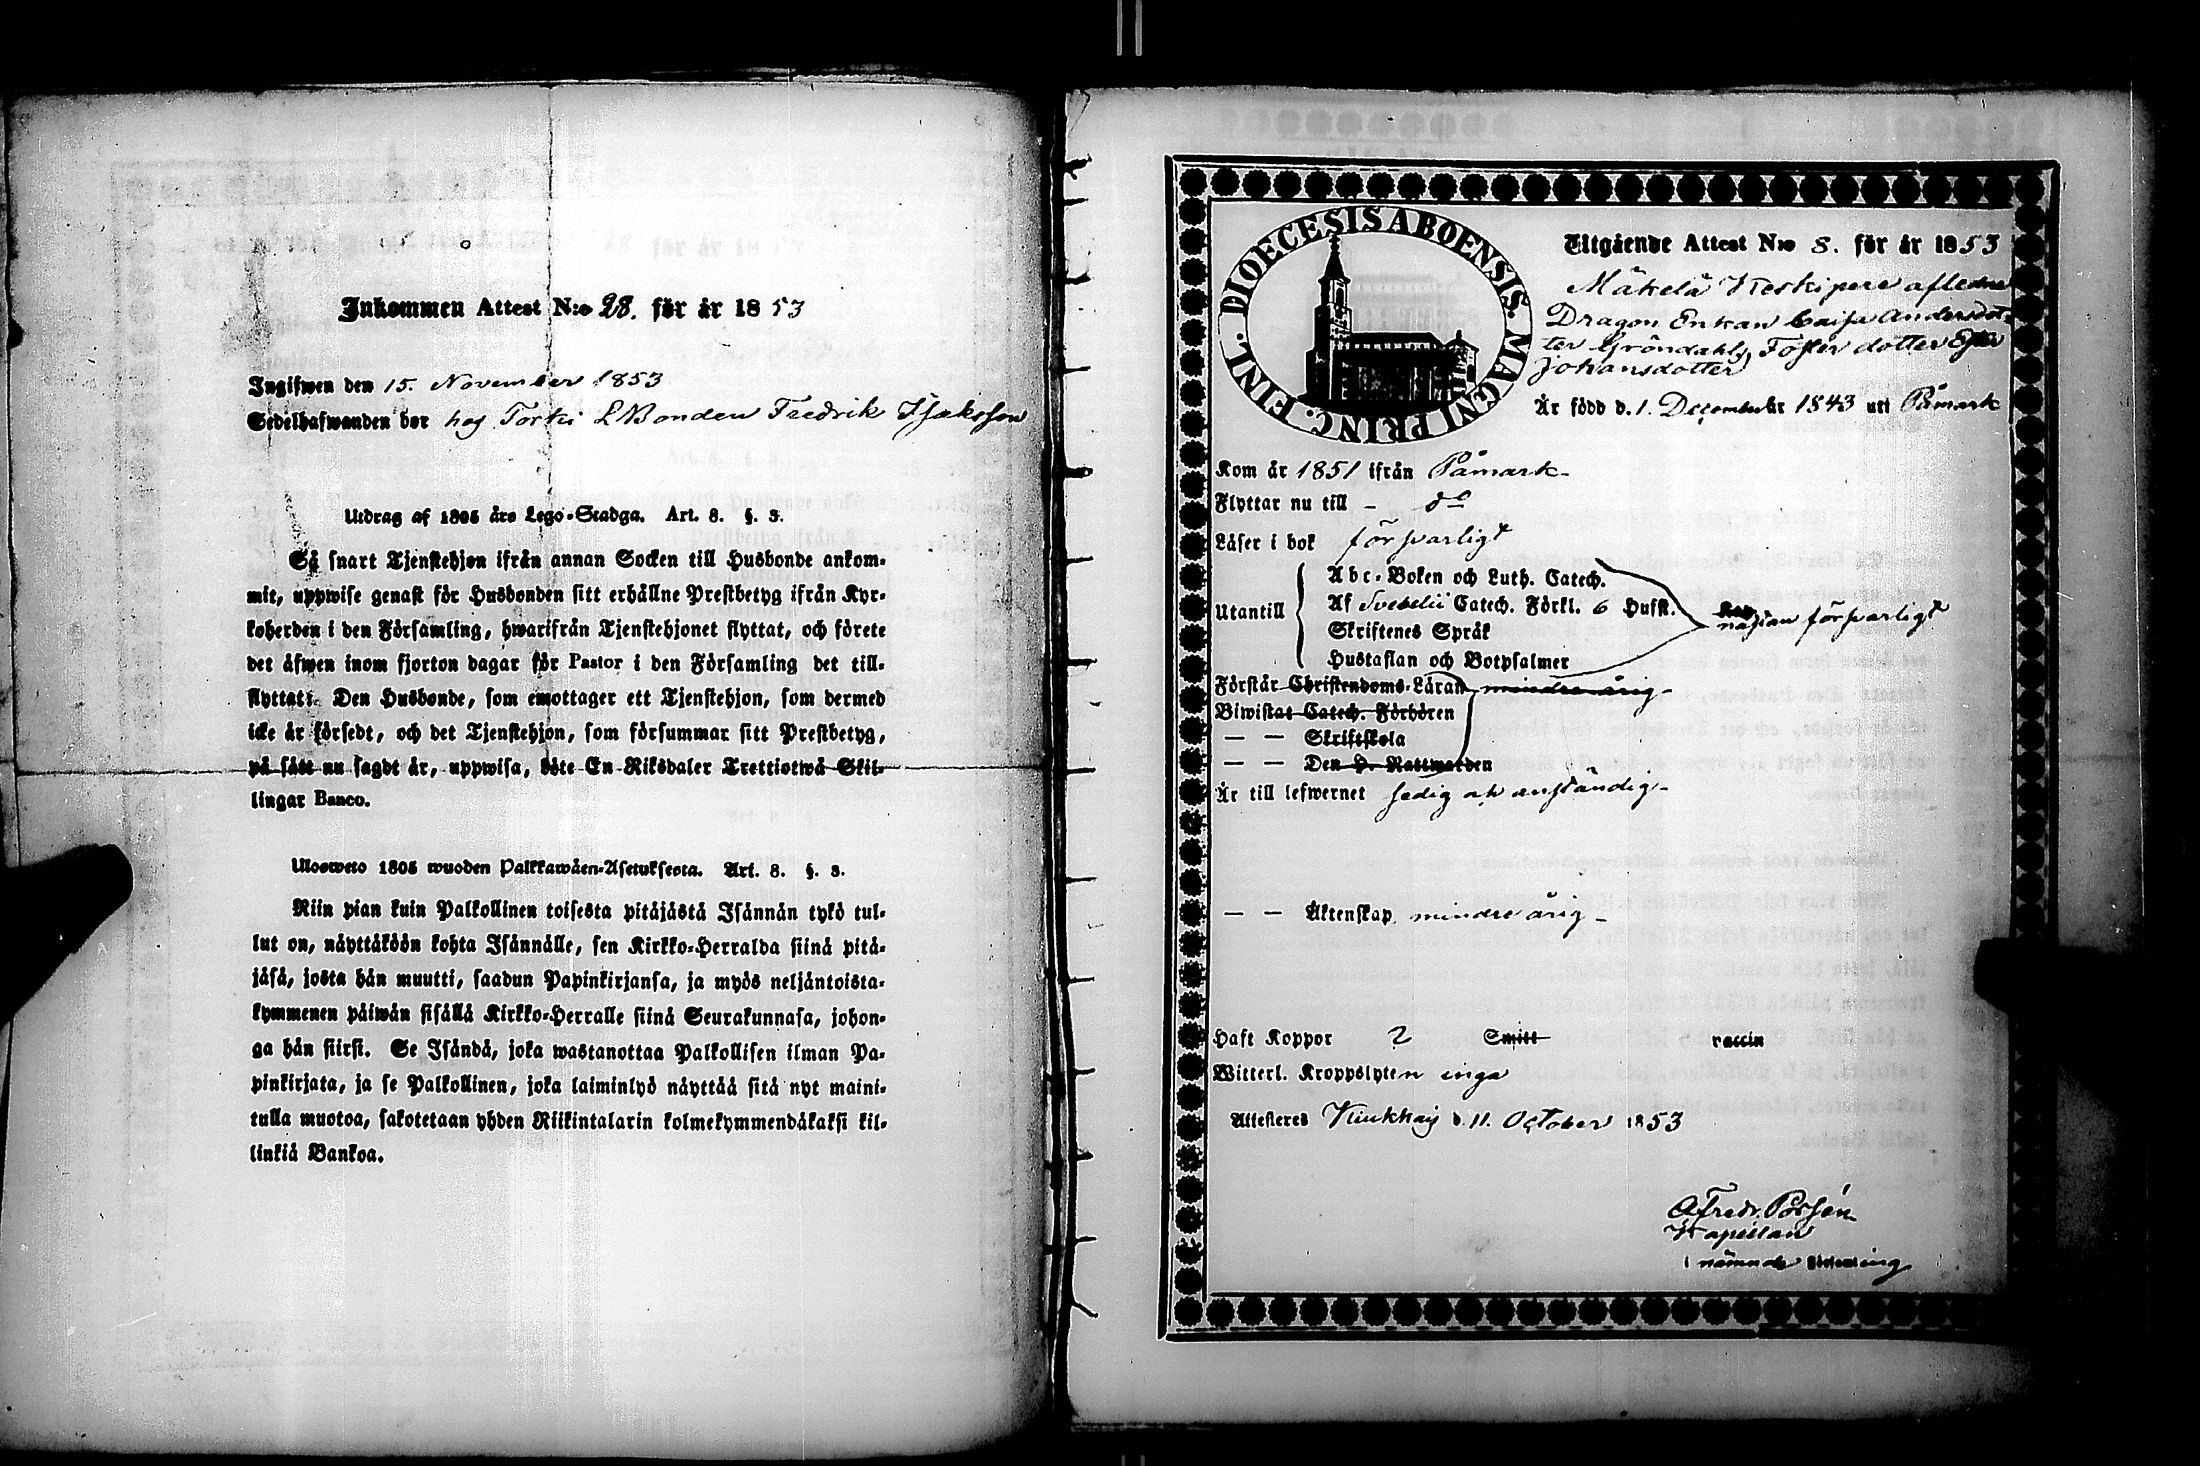 Inkommen Attest N:o 28. för år 1853
Ingifwen den 15. November 1853
Sedelhafwanden bor hos Torki L Bonden Fredrik Isaksson
Utdrag af 1805 års Lego-Stadga. Art. 8. §. 3.
Så snart Tjenstehjon ifrån annan Socken till Husbonde ankom-
mit, uppwise genast för Husbonden sitt erhållne Prestbetyg ifrån Kyr-
koherden i den Församling, hwarifrån Tjenstehjonet flyttat, och förete
det äfwen inom fjorton dagar för Pastor i den Församling det till-
flyttat. Den Husbonde, som emottager ett Tjenstehjon, som dermed
icke är försedt, och det Tjenstehjon, som försummar sitt Prestbetyg,
på sätt nu sagdt är, uppwisa, böte En Riksdaler Trettiotwå Skil-
lingar Banco.
Ulosweto 1805 wuoden Palkkawäen-Asetuksesta. Art. 8. §. 3.
Niin pian kuin Palkollinen toisesta pitäjästä Isännän tykö tul-
lut on, näyttäköön kohta Isännälle, sen Kirkko-Herralda siinä pitä-
jäsä, josta hän muutti, saadun Papinkirjansa, ja myös neljäntoista-
kymmenen päiwän sisällä Kirkko-Herralle siinä Seurakunnasa, johon-
ga hän siirsi. Se Isändä, joka wastanottaa Palkollisen ilman Pa-
pinkirjata, ja se Palkollinen, joka laiminlyö näyttää sitä nyt maini-
tulla muotoa, sakotetaan yhden Riikintalarin kolmekymmendäkaksi kil-
linkiä Bankoa.
DIOECESIS ABOENSIS. MAGNI PRINC. FINL.
Utgående Attest N:o 8. för år 1853
Mäkelä Keskipere afledne
Dragon Enkan Caisa Andersdot-
ter Gröndahls Foster dotter
Johansdotter
Är född d. 1. December år 1843 uti Påmark
Kom år 1851 ifrån Påmark-
Flyttar nu till - do
Läser i bok försvarligt
Utantill
Abc-Boken och Luth. Catech.
Af Svebelii Catech. Förkl. 6 Hufst.
Skriftenes Språk
Hustaflan och Botpsalmer
någian försvarligt
Förstår Christendoms-Läran mindre årig-
Biwistat Catech. Förhören
— — Skriftskola
— — Den H. Nattwarden
Är till lefwernet sedig ock anständig-
— — Äktenskap mindre årig-
Haft Koppor ? Smitt vaccin
Witterl. Kroppslyten inga
Attesteres Kiukkais d. 11. October 1853
Fredr. Possén
Kapellan
i nämnde Församling